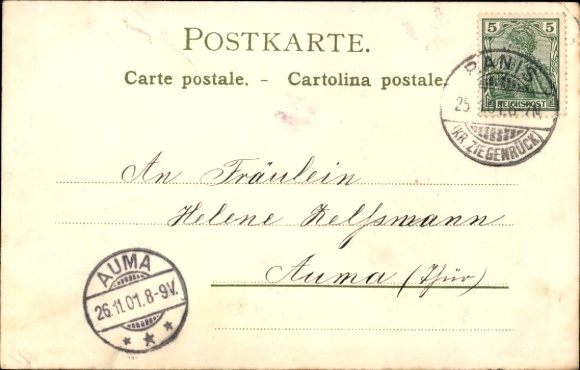 POSTKARTE.
Carte postale. - Cartolina postale.
5 5
REICHSPOST
RANIS
25. 11.01. 6-7N.
(KR. ZIEGENRÜCK)
An Fräulein
Helene
Auma (Thür)
AUMA
26.11.01.8-9V.